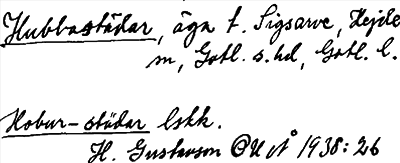 Hubbastädar, äga t. Sigsarve, Hejde
sn, Gotl. s. hd, Gotl. l.
Hobur-städar lskk.
H. Gustavson OUÅ 1938: 26